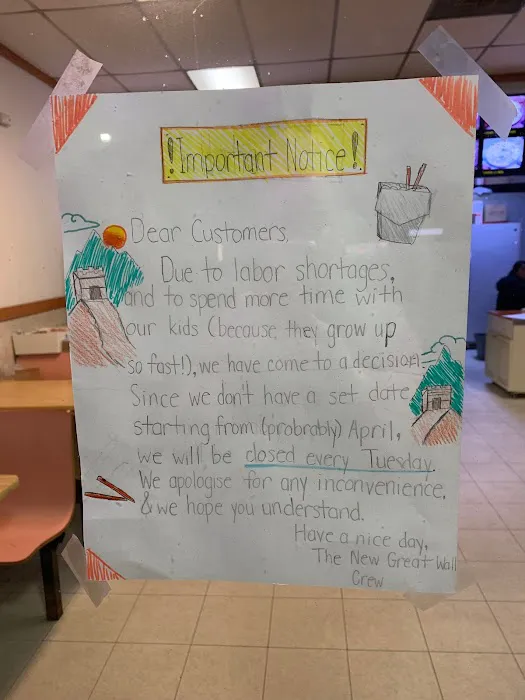 !Important Notice!
Dear Customers,
Due to labor shortages,
and to spend more time with
our kids (because they grow up
so fast!), we have come to a decision:
Since we don't have a set date,
starting from (probrably) April,
we will be closed every Tuesday.
We apologise for any inconvenience,
& we hope you understand.
Have a nice day,
The New Great Wall
Crew